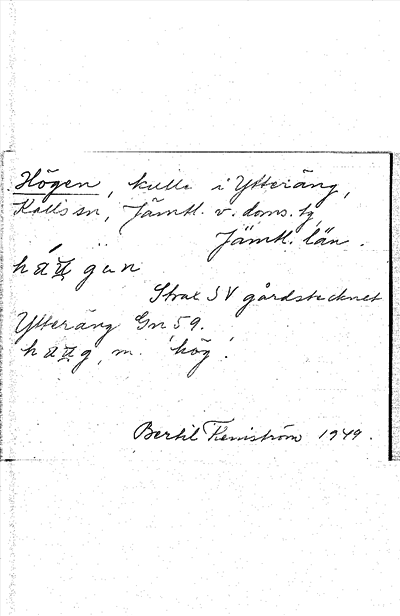 Högen, kulle i Ytteräng,
Kalls sn, Jämtl. v. doms. tg,
Jämtl. län.
Strax SV gårdstecknet
Ytteräng Gn 59.
m. 'hög'.
Bertil 1949.